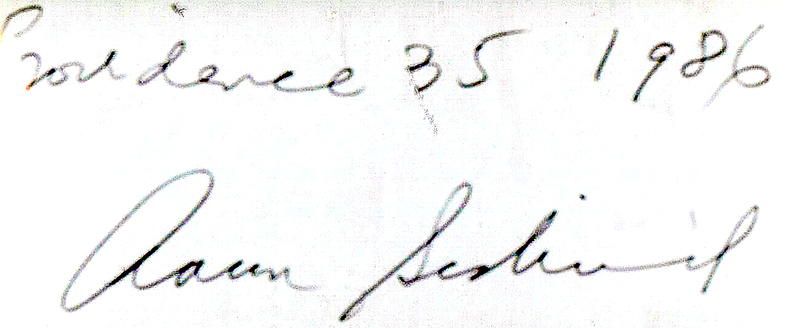 Providence 35 1986
Aaron Siskind